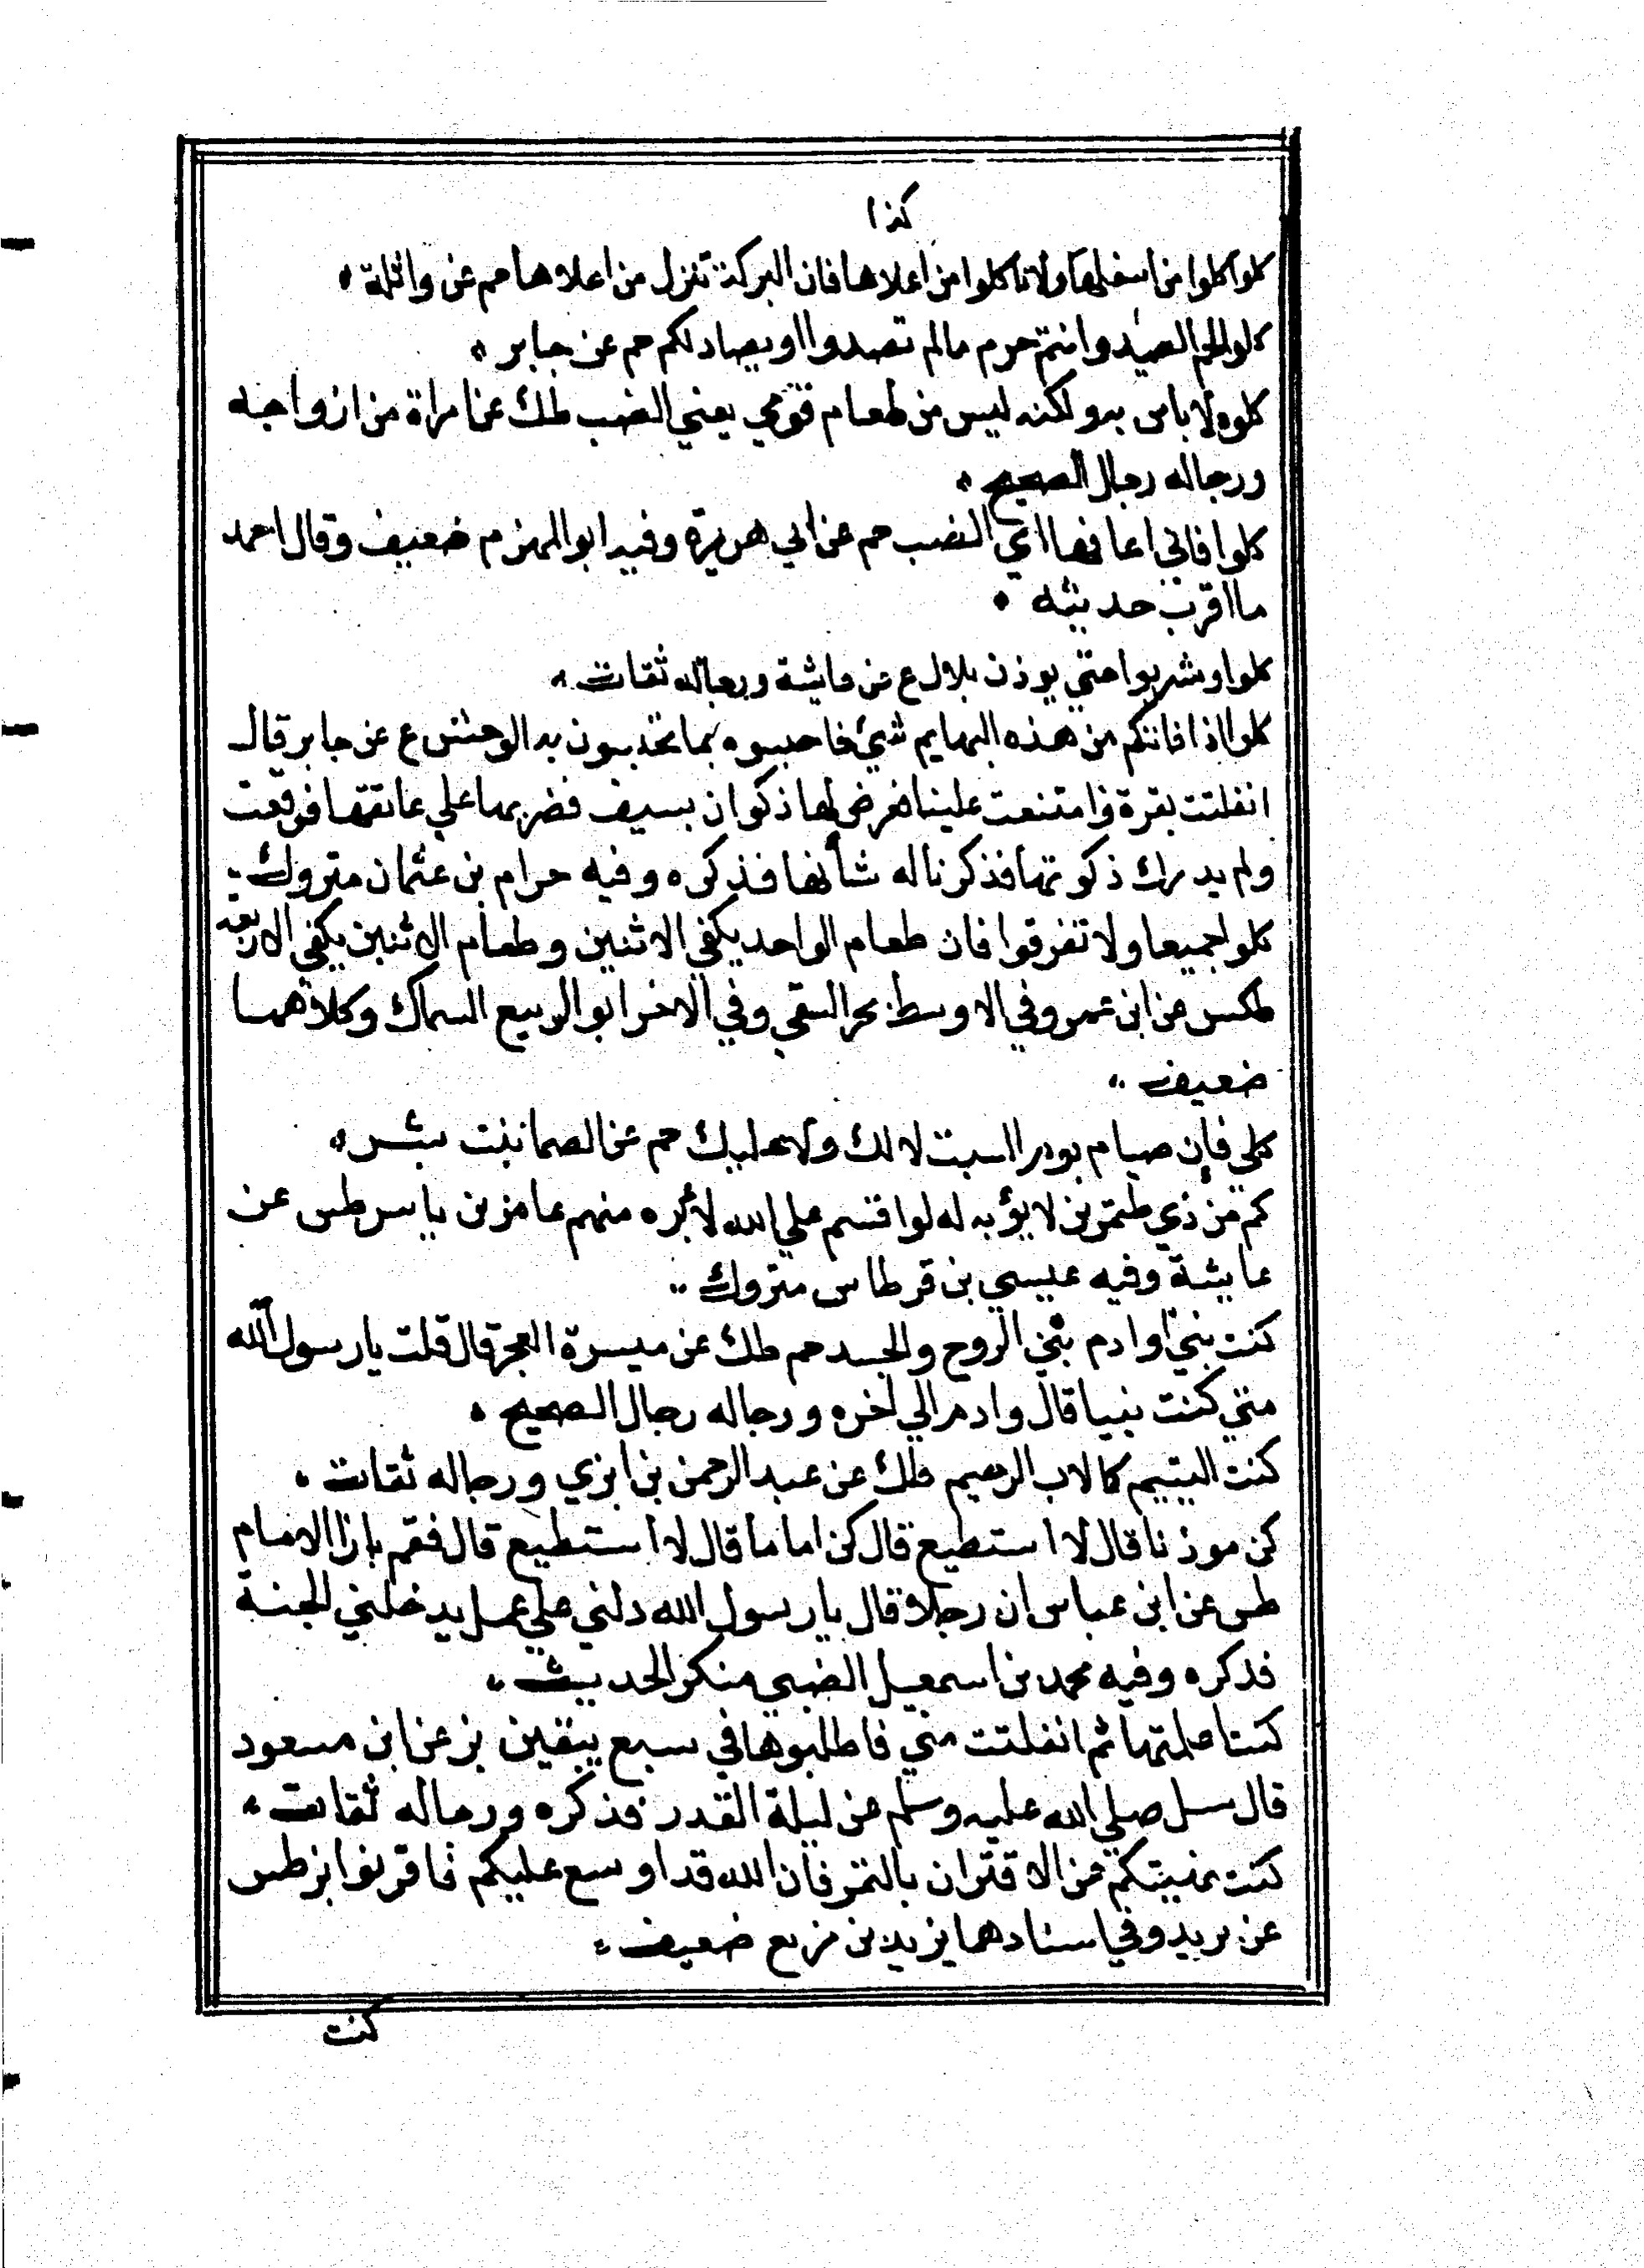 كذا
كلوا كلوا من اسفلها ولا تاكلوا من اعلاها فان البركة تنزل من اعلاها حم عن واثلة
كلوا لحم الصيد وانتم حرم مالم تصدوا او يصاد لكم حم عن جابر
كلوه لا باس به ولكنه ليس من طعام قومي يعني الضب طك عن امراة من ازواجه
ورجاله رجال الصحيح
كلوا فاني اعافها اي الضب حم عن ابي هريرة وفيه ابو المهزم ضعيف وقال احمد
ما اقرب حديثه
كلوا وشربوا حتي يوذن بلال ع عن عايشة ورجاله ثقات
كلوا اذا فاتكم من هذه البهايم شيء فاحبسوه بما تحبسون به الوحش ع عن جابر قال
انفلتت بقرة فامتنعت علينا فعرض لها ذكوان بسيف فضربها علي عاتقها فوقعت
ولم يدرك ذكوتها فذكرنا له شأنها فذكره وفيه حرام بن عثمان متروك
كلوا جميعا ولا تفرقوا فان طعام الواحد يكفي الاثنين وطعام الاثنين يكفي الاربعه
طكس عن ابن عمر وفي الاوسط بحر السقي وفي الاخر ابو الربيع السماك وكلاهما
ضعيف
كلي فإن صيام يوم السبت لا لك ولا عليك حم عن الصما بنت بشر
كم من ذي طمرين لا يؤبه له لو اقسم علي الله لأبره منهم عامر بن ياسر طس عن
عايشة وفيه عيسي بن قرطاس متروك
كنت بني اوادم بين الروح والجسد حم طك عن ميسرة العجر قال قلت يا رسول الله
متي كنت نبيا قال وادم الي اخره ورجاله رجال الصحيح
كنت اليتيم كالاب الرحيم طك عن عبد الرحمن بن ابزي ورجاله ثقات
كن موذنا قال لا استطيع قال كن اماما قال لا استطيع قال فقم بازا الامام
طس عن ابن عباس ان رجلا قال يا رسول الله دلني علي عمل يدخلني الجنة
فذكره وفيه محمد بن اسمعيل الضبي منكر الحديث
كنت اعلمتها ثم انفلتت مني فاطلبوها في سبع يبقين بز عن ابن مسعود
قال سل صلي الله عليه وسلم عن ليلة القدر فذكره ورجاله ثقات
كنت نهيتكم عن الاقتران بالتمر فان الله قد اوسع عليكم فاقرنوا بز طس
عن بريد وفي اسنادهما يزيد بن زيع ضعيف
كنت